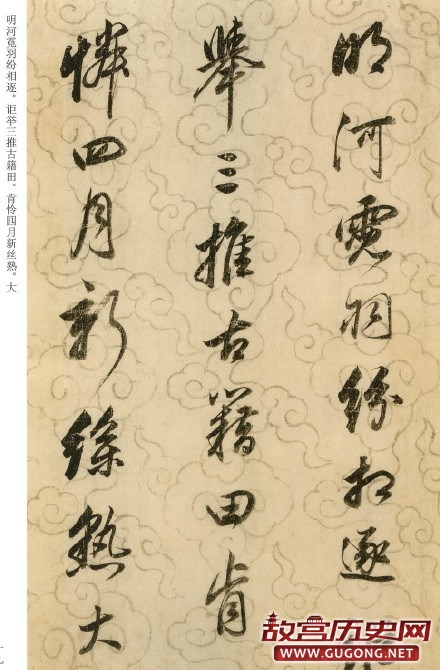 明河霓羽紛相逐
舉三推古籍田肯
憐四月新絲熟大
明河霓羽纷相逐。讵举三推古籍田。肯怜四月新丝熟。大
故宫历史网
WWW.GUGONG.NET